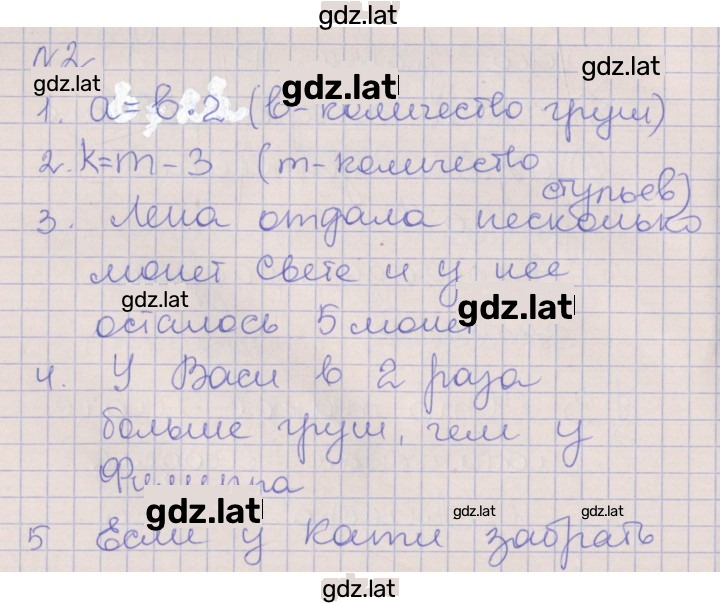 gdz.lat
N2
gdz.lat gdz.lat gdz.lat
1. a = b · 2 (b - количество груш)
2. k = m - 3 (m - количество
стульев)
3. Лена отдала несколько
монет Свете и у нее
gdz.lat gdz.lat
осталось 5 монет
4. У Васи в 2 раза
больше груш, чем у
Филиппа
gdz.lat gdz.lat gdz.lat
5 Если у Кати забрать
gdz.lat